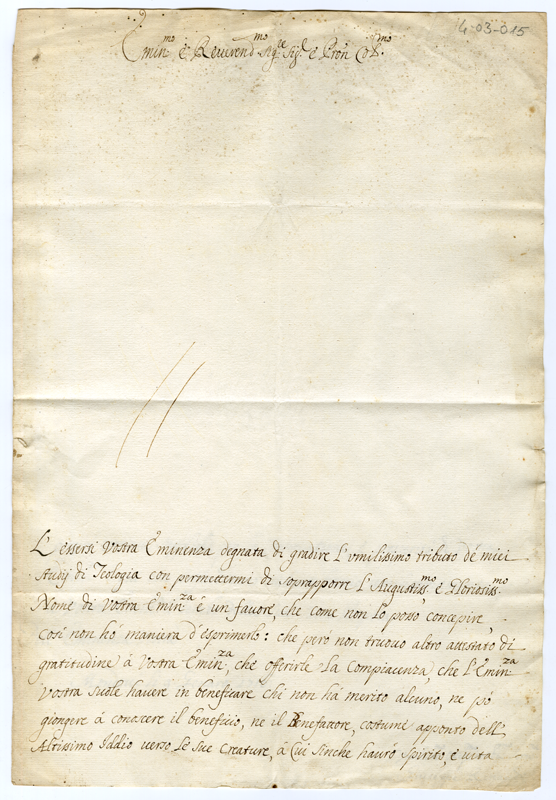 4-03-015
Emin.mo e Reverend.mo Sig.re Sig.r e Pron Col.mo
L'essersi Vostra Eminenza degnata di gradire l'umilissimo tributo de miei
studij di Teologia con permettermi di soprapporre l'Augustiss.mo e Gloriosiss.mo
Nome di Vostra Emin.za é un favore, che come non lo posso concepire,
così non hó maniera d'esprimerlo: che però non truovo altro attestato di
gratitudine á Vostra Emin.za, che offerirle la Compiacenza, che l'Emin.za
Vostra suole havere in beneficare chi non há merito alcuno, ne pó
giongere á conoscere il beneficio, ne il Benefattore, costume apponto dell'
Altissimo Iddio verso le sue Creature, á Cui sinche havró Spirito, e vita